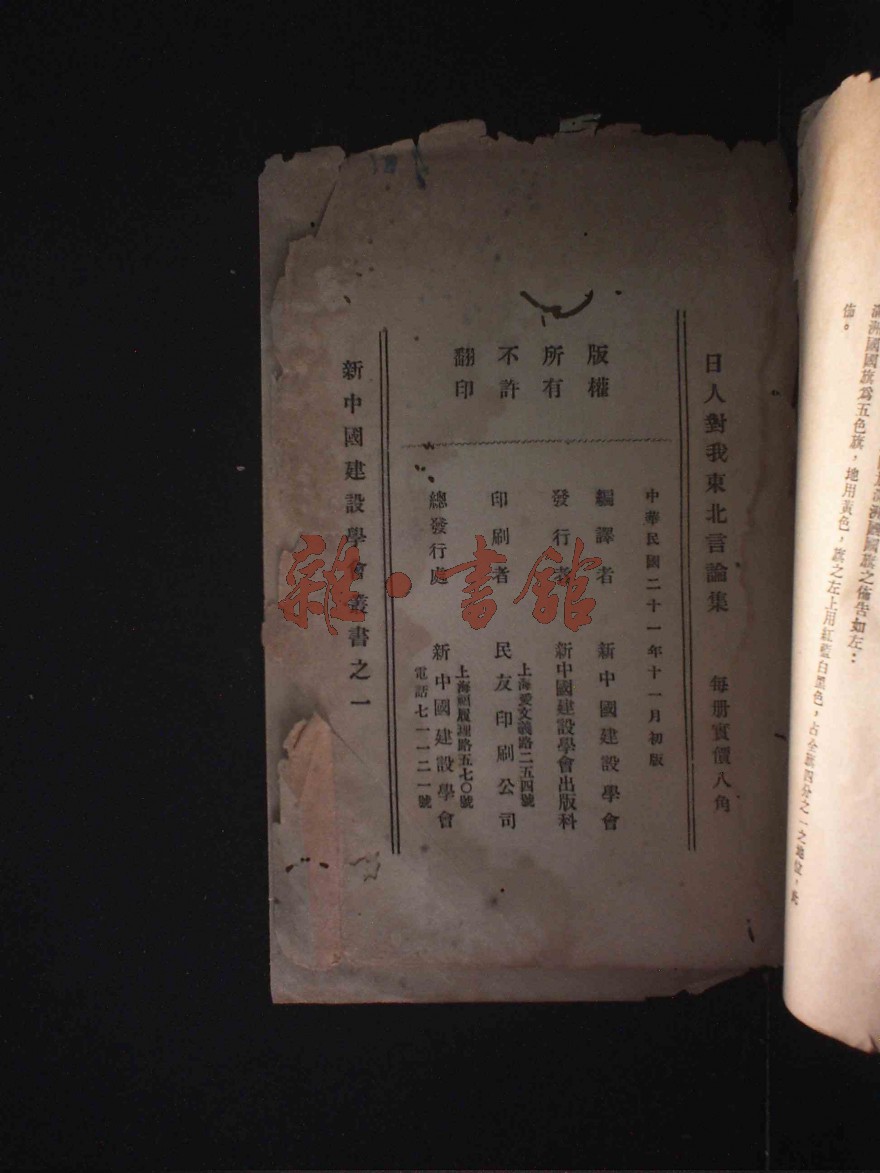 滿洲國國旗之佈告如左：
滿洲國國旗爲五色旗，地用黃色，旗之左上用紅藍白黑色，占全旗四分之一之地位，
佈。
日人對我東北言論集 每册實價八角
中華民國二十一年十一月初版
版權所有不許翻印
編譯者 新中國建設學會
發行者 新中國建設學會出版科
上海愛文義路二五四號
印刷者 民友印刷公司
上海路五七〇號
總發行處 新中國建設學會
電話七一一二一號
新中國建設學會叢書之一
雜·書館